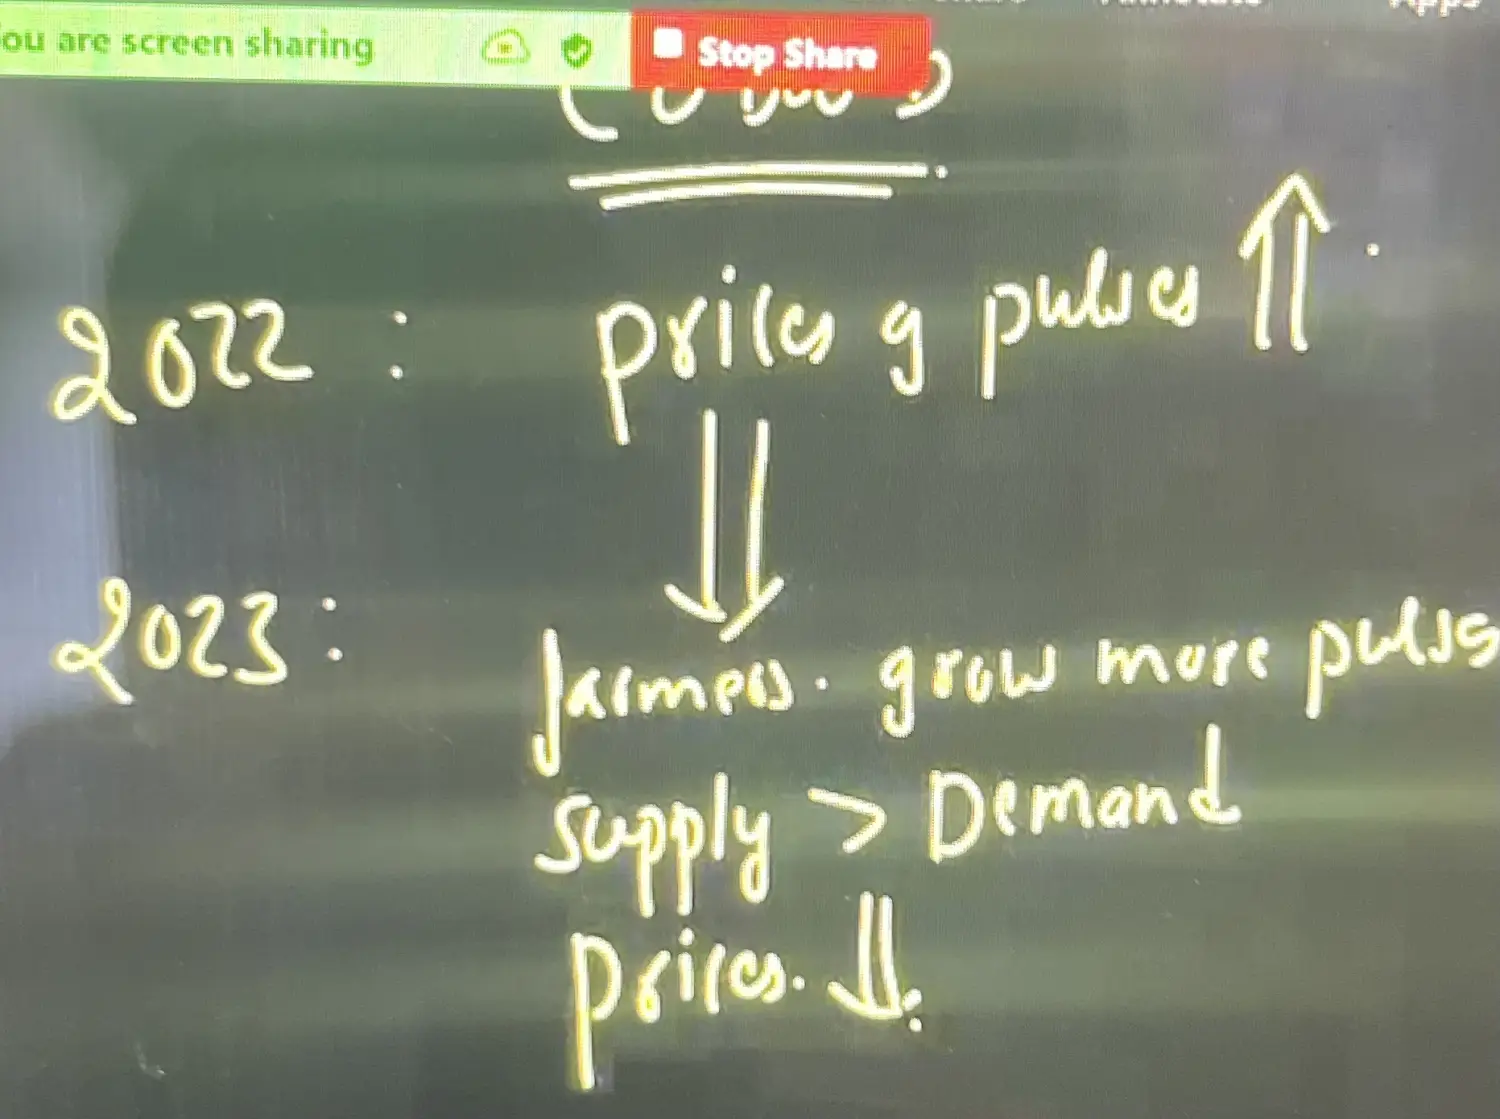 ou are screen sharing
Stop Share
2022 : prices of pulses ⇑
⇓
2023 : farmers. grow more pulses
Supply > Demand
prices. ⇓